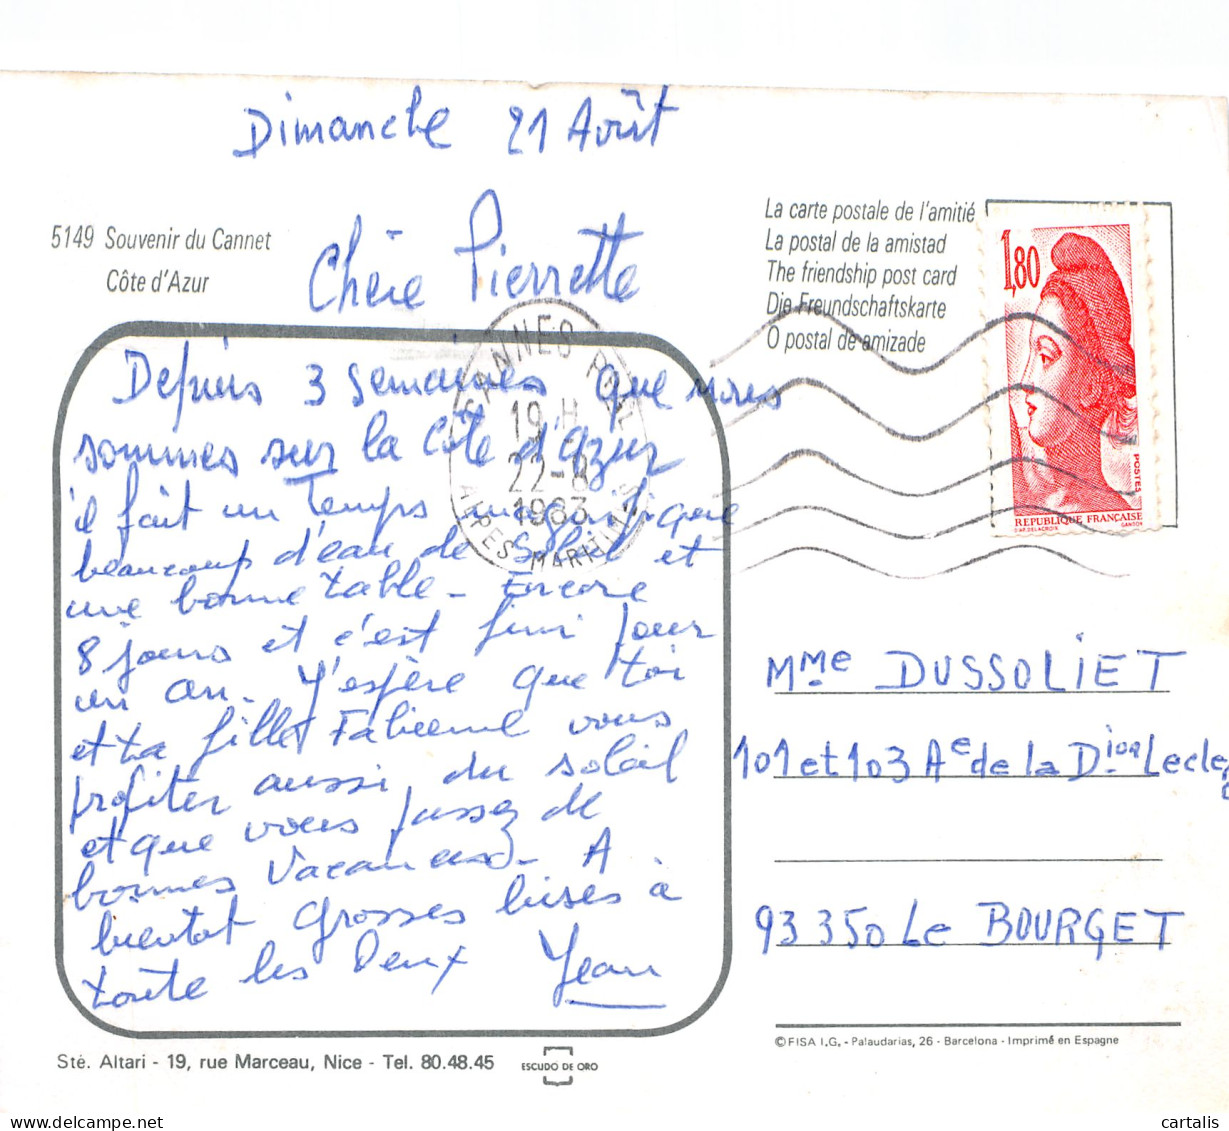 Dimanche 21 Août
5149 Souvenir du Cannet
Côte d'Azur
Chère Pierrette
Depuis 3 semaines que nous
sommes sur la Côte d'azur
il fait un Temps magnifique
beaucoup d'eau de Soleil et
une bonne table - Encore
8 jours et c'est fini pour
un an. J'espère que toi
et ta fille Fabienne vous
profiter aussi du soleil
et que vous passez de
bonnes Vacances - A
bientot grosses bises à
toute les Deux Jean
Sté. Altari - 19, rue Marceau, Nice - Tel. 80.48.45
ESCUDO DE ORO
La carte postale de l'amitié
La postal de la amistad
The friendship post card
Die Freundschaftskarte
O postal de amizade
1,80
POSTES
REPUBLIQUE FRANÇAISE
D'AP. DELACROIX GANDON
CANNES PPAL
19 H
22-8
1983
ALPES MARITIMES
Mme DUSSOLIET
101 et 103 Ae de la Dion Lecle
93350 Le BOURGET
© FISA I.G. - Palaudarias, 26 - Barcelona - Imprimé en Espagne
cartalis